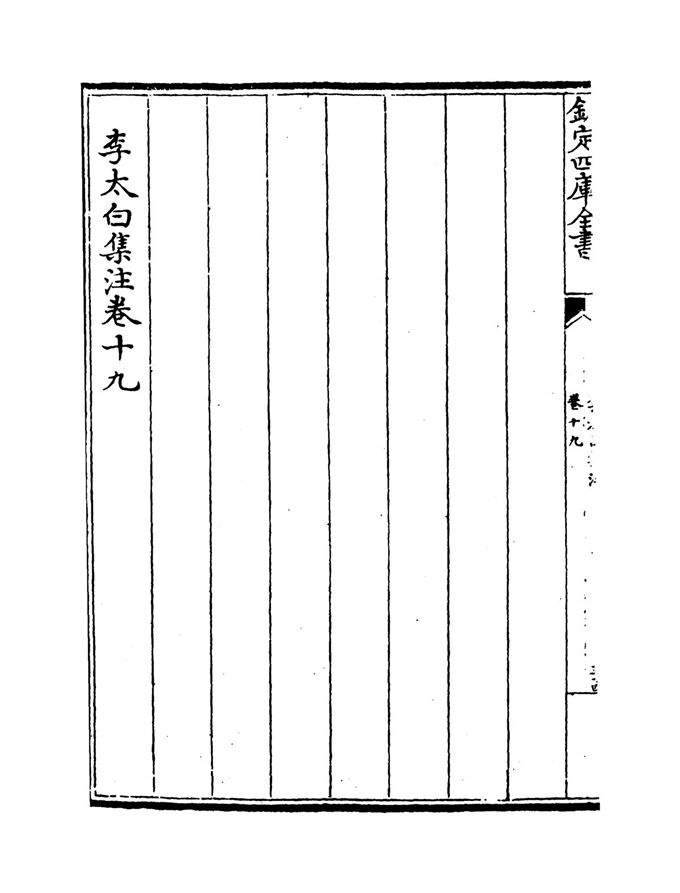 欽定四庫全書
卷十九
李太白集注卷十九